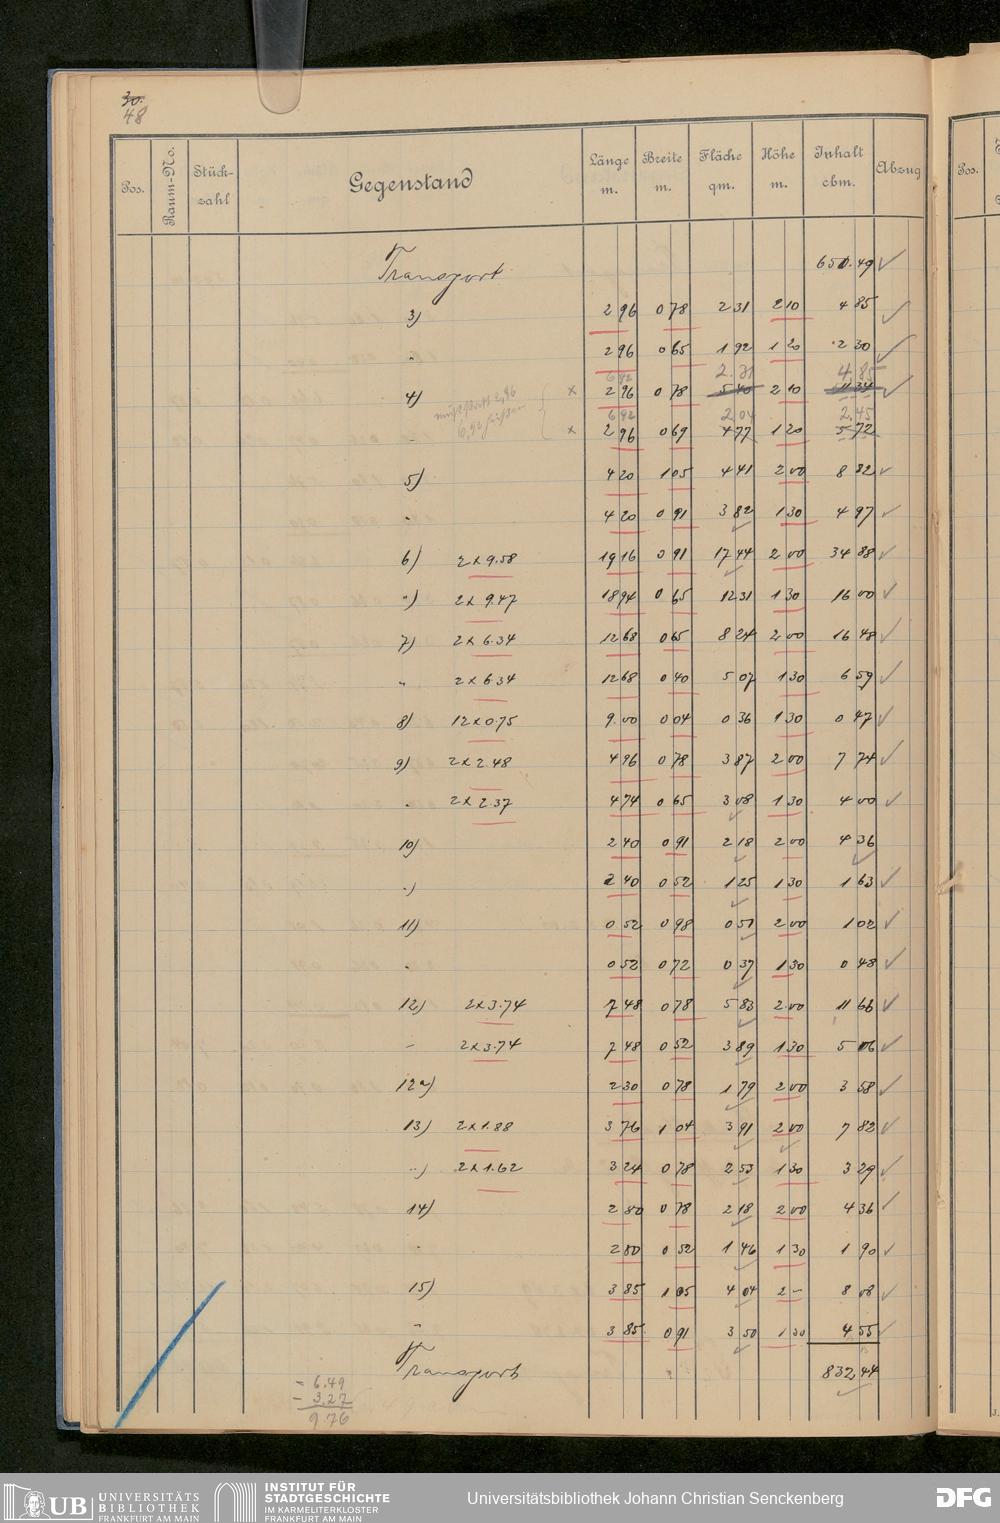 30.
48
Pos. Raum-No. Stück-zahl Gegenstand Länge m. Breite m. Fläche qm. Höhe m. Inhalt cbm. Abzug
Pos.
Transport 650.49
3) 2 96 0 78 2 31 2 10 4 85
" 2 96 0 65 1 92 1 20 2 30
6 92 2.31 4,85
4) × 2 96 0 78 5 40 2 10 11 34
6 92 2 04 2.45
" × 2 96 0 69 4 77 1 20 5 72
5) 4 20 1 05 4 41 2 00 8 82
" 4 20 0 91 3 82 1 30 4 97
6) 2 x 9.58 19 16 0 91 17 44 2 00 34 88
") 2 x 9.47 18 94 0 65 12 31 1 30 16 00
7) 2 x 6.34 12 68 0 65 8 24 2 00 16 48
" 2 x 6.34 12 68 0 40 5 07 1 30 6 59
8) 12 x 0.75 9.00 0 04 0 36 1 30 0 47
9) 2 x 2.48 4 96 0 78 3 87 2 00 7 74
" 2 x 2.37 4 74 0 65 3 08 1 30 4 00
10) 2 40 0 91 2 18 2 00 4 36
") 2 40 0 52 1 25 1 30 1 63
11) 0 52 0 98 0 51 2 00 1 02
" 0 52 0 72 0 37 1 30 0 48
12) 2 x 3.74 7 48 0 78 5 83 2 00 11 66
" 2 x 3.74 7 48 0 52 3 89 1 30 5 06
12a) 2 30 0 78 1 79 2 00 3 58
13) 2 x 1.88 3 76 1 04 3 91 2 00 7 82
") 2 x 1.62 3 24 0 78 2 53 1 30 3 29
14) 2 80 0 78 2 18 2 00 4 36
" 2 80 0 52 1 46 1 30 1 90
15) 3 85 1 05 4 04 2 – 8 08
" 3 85 0 91 3 50 1 30 4 55
Transport 832,44
= 6.49
– 3.27
9.76
UB UNIVERSITÄTS BIBLIOTHEK FRANKFURT AM MAIN
INSTITUT FÜR STADTGESCHICHTE IM KARMELITERKLOSTER FRANKFURT AM MAIN
Universitätsbibliothek Johann Christian Senckenberg
DFG